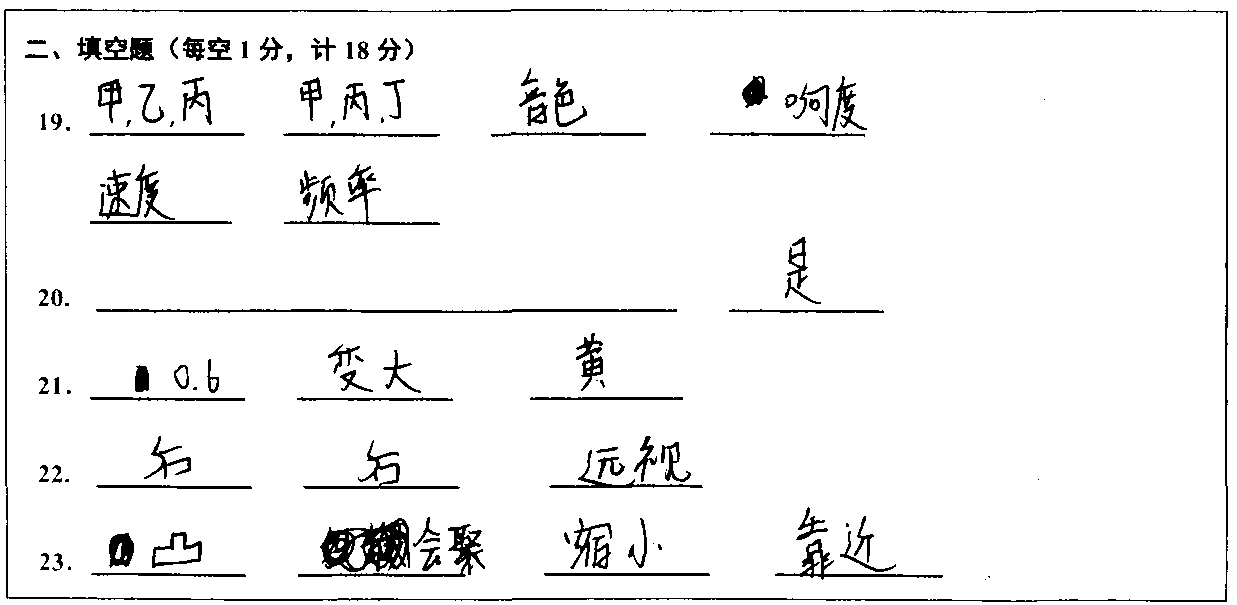 二、填空题（每空1分，计18分）
19. 甲,乙,丙 甲,丙,丁 音色 响度
速度 频率
20. 是
21. 0.6 变大 黄
22. 右 右 远视
23. 凸 会聚 缩小 靠近